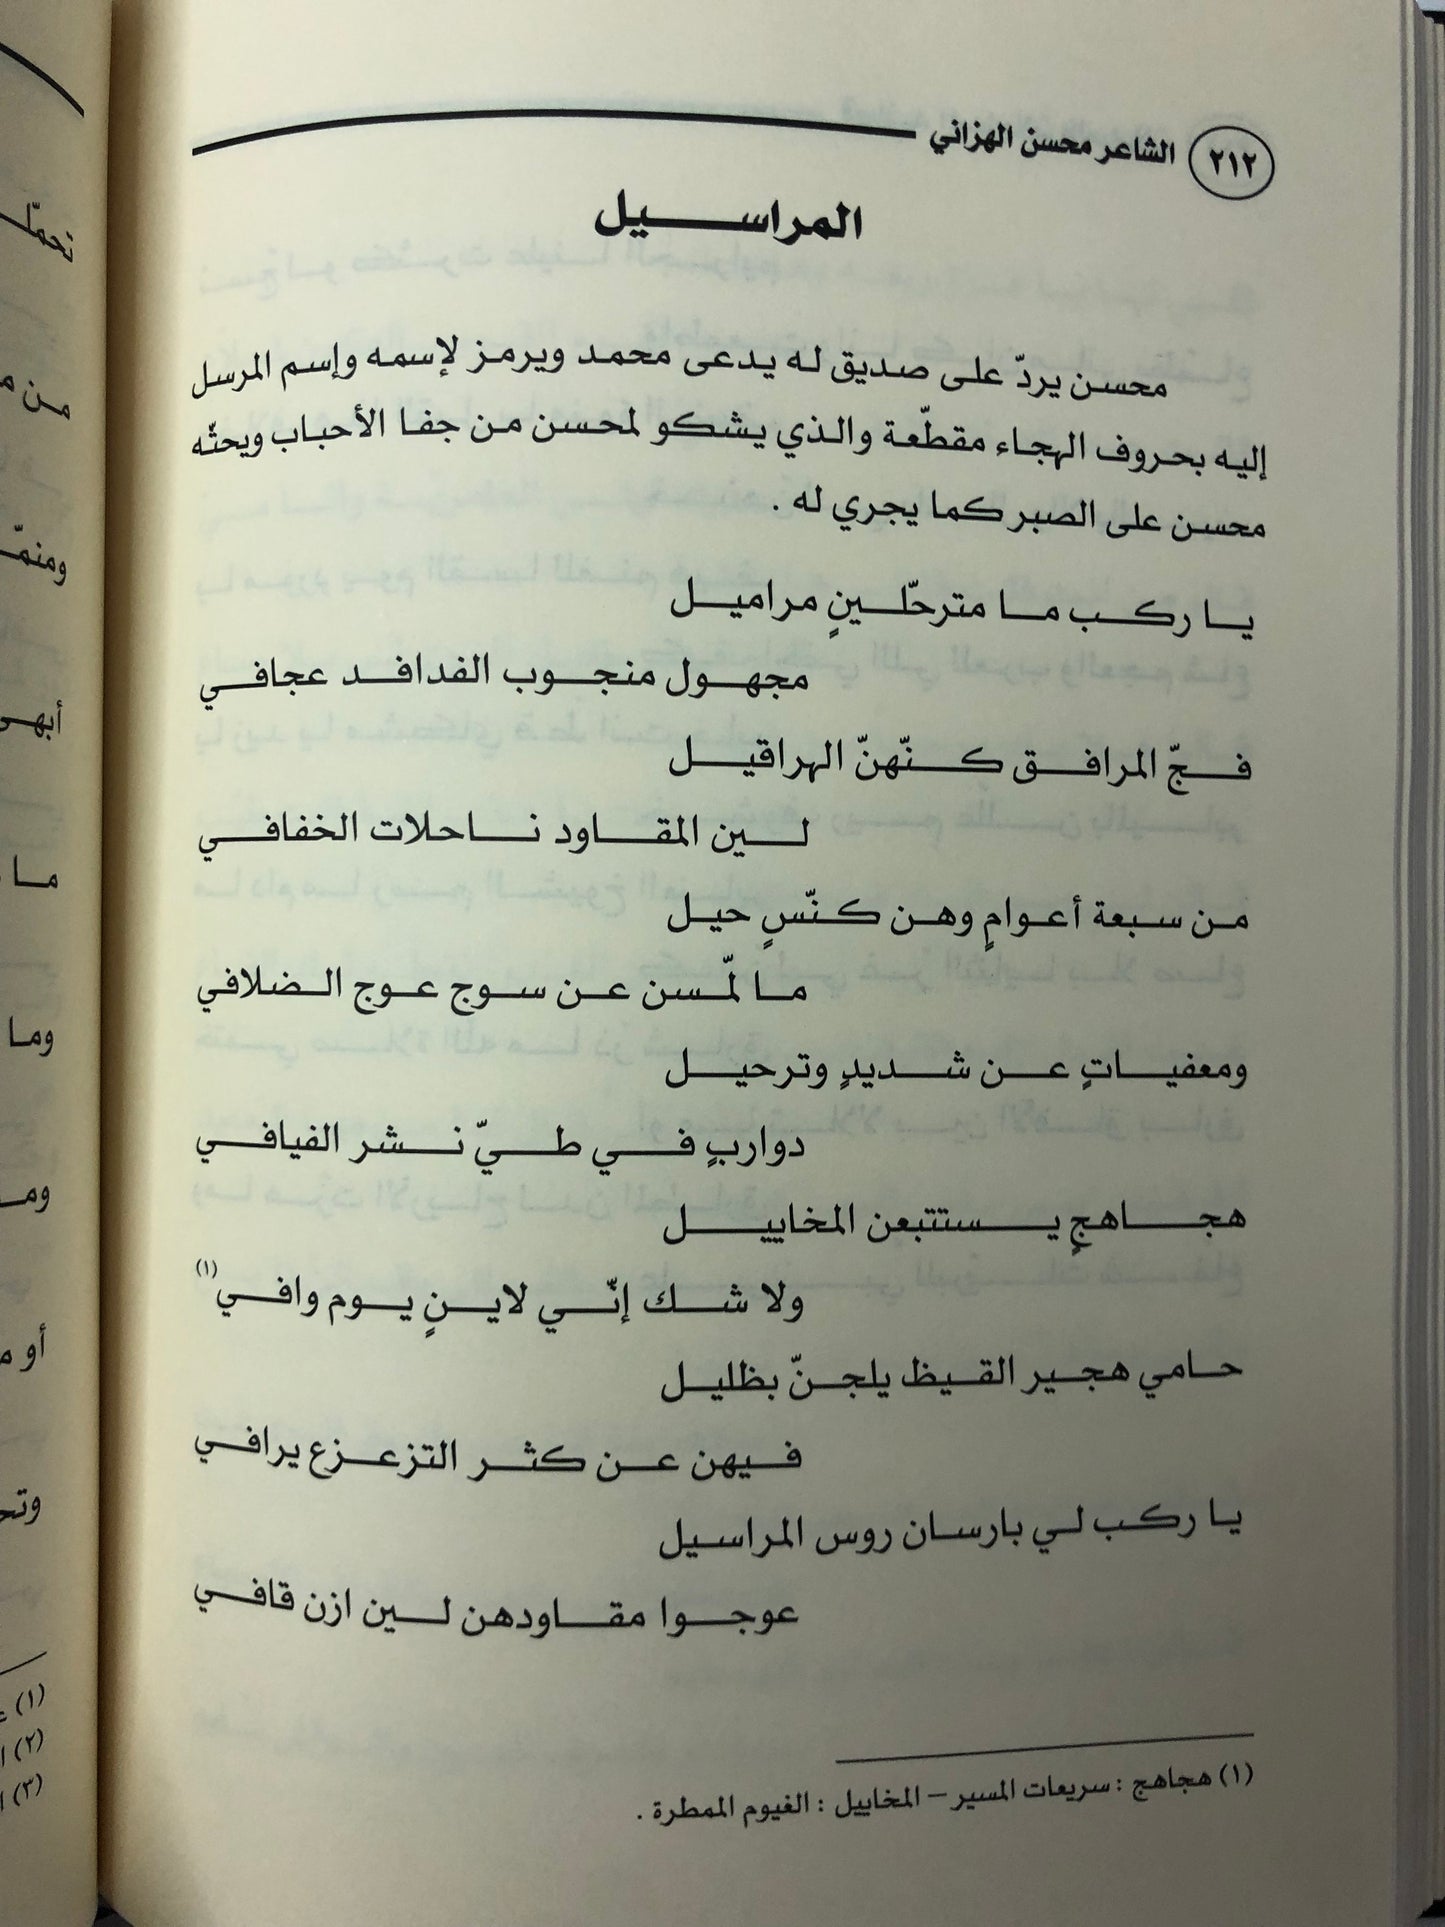 ٢١٢ الشاعر محسن الهزاني
المراسيل
محسن يردّ على صديق له يدعى محمد ويرمز لإسمه وإسم المرسل
إليه بحروف الهجاء مقطّعة والذي يشكو لمحسن من جفا الأحباب ويحثّه
محسن على الصبر كما يجري له .
يا ركب ما مترحّلينٍ مراميل
مجهول منجوب الفدافد عجافي
فجّ المرافق كنّهنّ الهراقيل
لين المقاود ناحلات الخفافي
من سبعة أعوامٍ وهن كنّسٍ حيل
ما لمّسن عن سوج عوج الضلافي
ومعفياتٍ عن شديدٍ وترحيل
دواربٍ في طيّ نشر الفيافي
هجاهجٍ يستتبعن المخاييل
ولا شك إنّي لاينٍ يوم وافي(١)
حامي هجير القيظ يلجنّ بظليل
فيهن عن كثر التزعزع يرافي
يا ركب لي بارسان روس المراسيل
عوجوا مقاودهن لين ازن قافي
(١) هجاهج : سريعات المسير – المخاييل : الغيوم الممطرة .
تحمّلـ
ومنمّـ
ما
وما
(١)
(٢)
(٣)